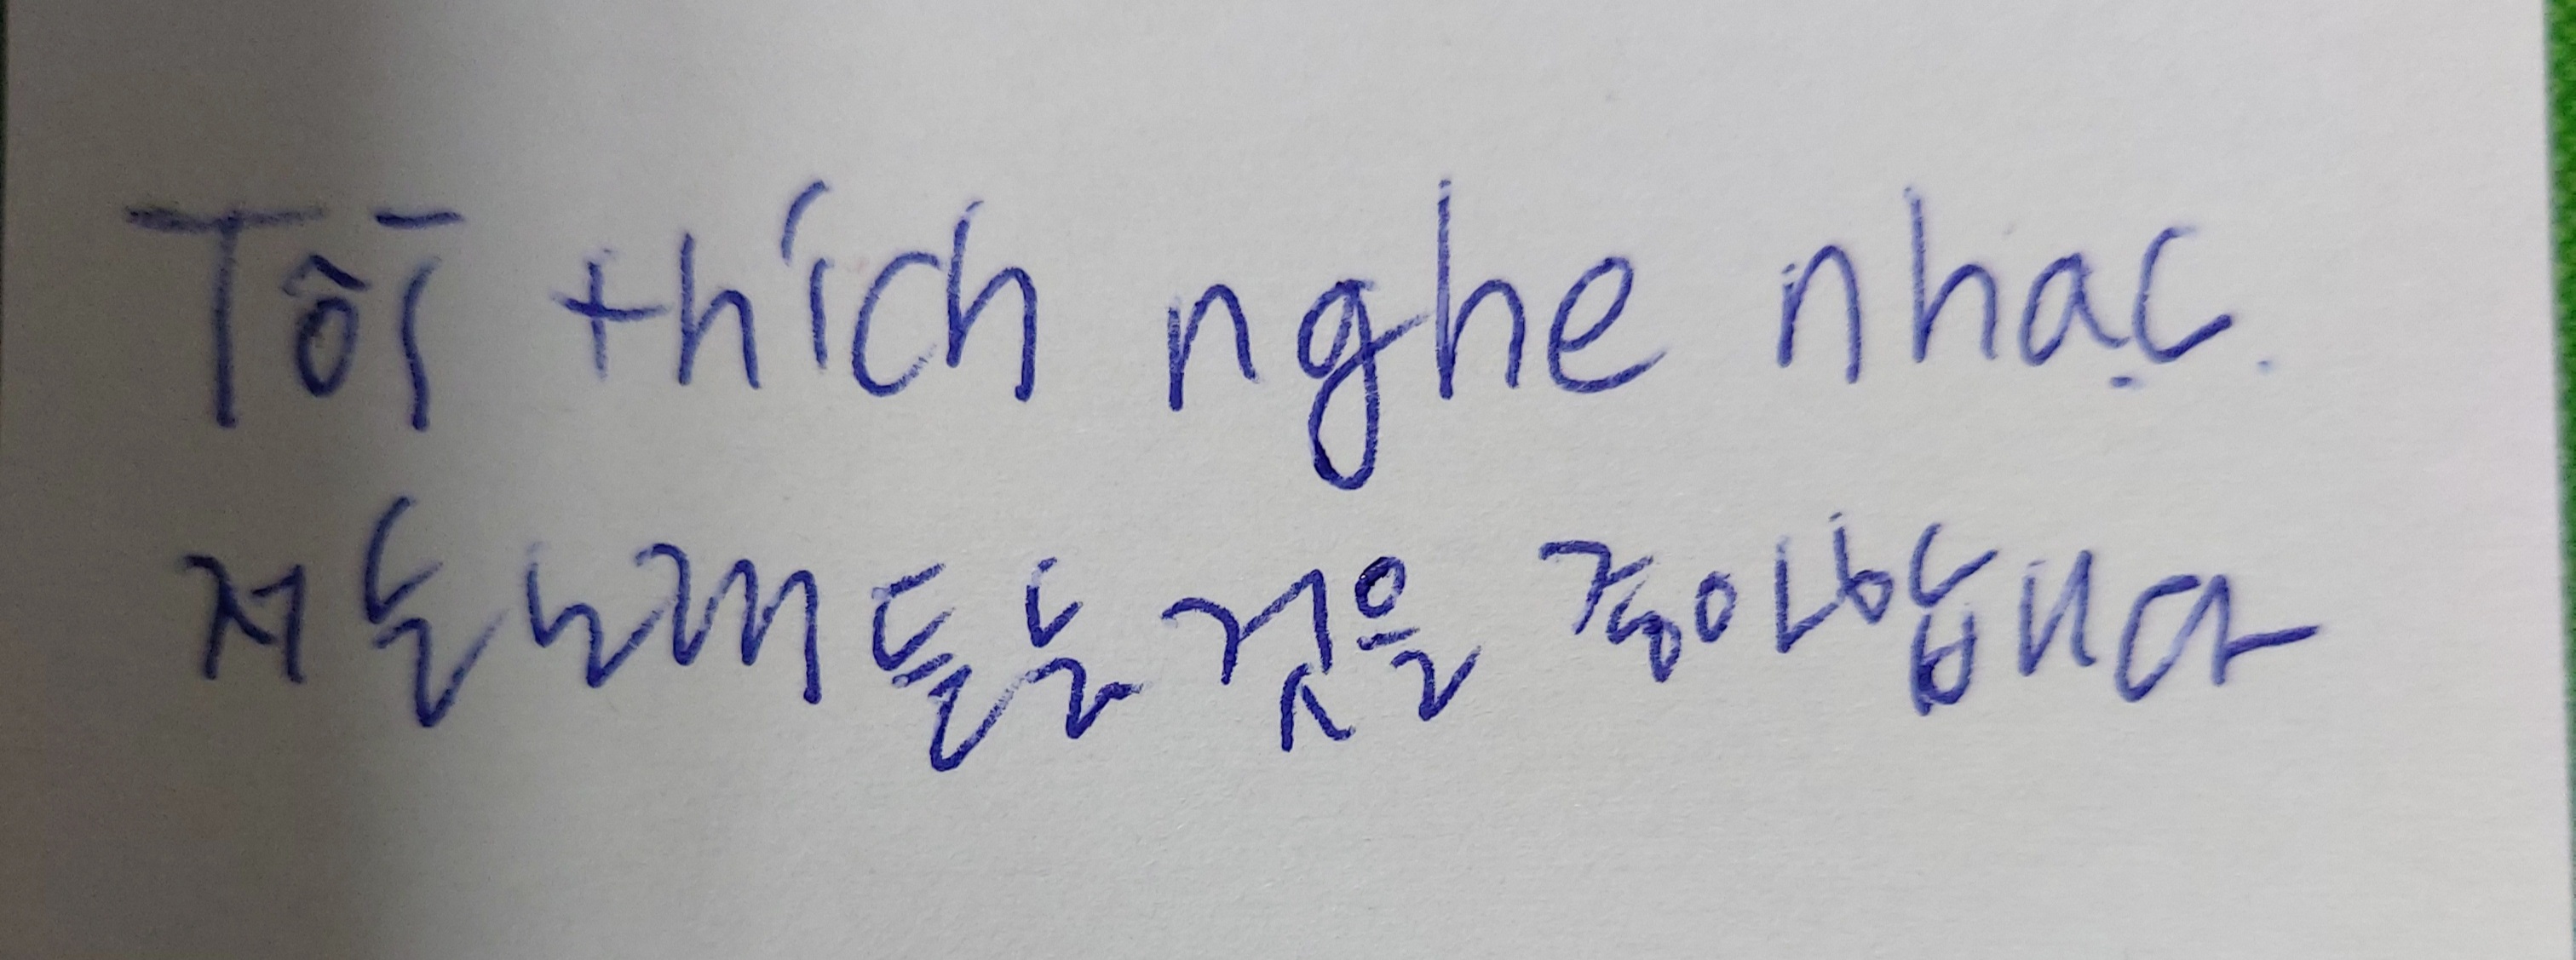 Tôi thích nghe nhạc.
저는 노래 듣는 것을 좋아합니다